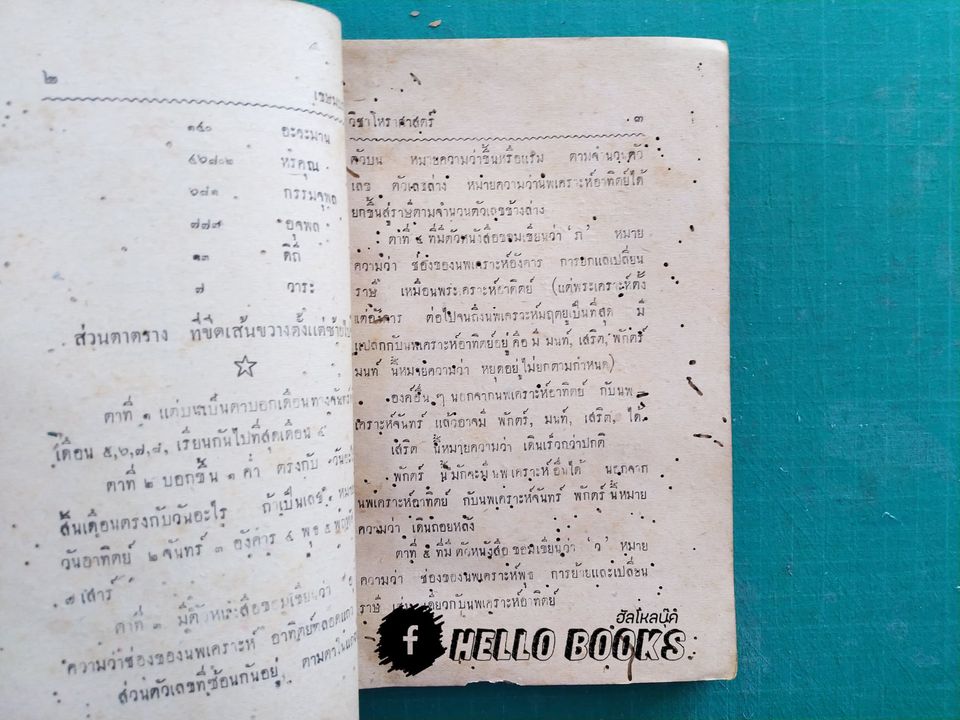 ๒
๑๔๐ อะวะมาน
๔๖๘๐๒ หรคุณ
๖๘๑ กรรมจุพล
๗๗๗ อุจพล
๑๓ ดิถี
๗ วาระ
ส่วนตาตราง ที่ขีดเส้นขวางตั้งแต่ซ้ายไป
ตาที่ ๑ แต่บนเป็นตาบอกเดือนทาง
เดือน ๕,๖,๗,๘, เรียนกันไปที่สุดเดือน ๔
ตาที่ ๒ บอกขึ้น ๑ ค่ำ ตรงกับ วัน
สิ้นเดือนตรงกับวันอะไร ถ้าเป็นเลข ๑
วันอาทิตย์ ๒ จันทร์ ๓ อังคาร ๔ พุธ ๕
๗ เสาร์
ตาที่ ๓ มีตัวหนังสือขอมเขียนว่า
ความว่าช่องของนพเคราะห์ อาทิตย์ตลอด
ส่วนตัวเลขที่ซ้อนกันอยู่ ตามตาใน
วิชาโหราศาสตร์ ๓
ตัวบน หมายความว่าขึ้นหรือแรม ตามจำนวนตัว
เลข ตัวเลขล่าง หมายความว่านพเคราะห์อาทิตย์ได้
ยกขึ้นสู่ราษีตามจำนวนตัวเลขข้างล่าง
ตาที่ ๔ ที่มีตัวหนังสือขอมเขียนว่า ‘ภ’ หมาย
ความว่า ช่องของนพเคราะห์อังคาร การยกแลเปลี่ยน
ราษี เหมือนพระเคราะห์อาทิตย์ (แต่พระเคราะห์ตั้ง
แต่อังคาร ต่อไปจนถึงนพเคราะห์มฤตยูเป็นที่สุด มี
แปลกกับนพเคราะห์อาทิตย์อยู่ คือ มี มนท์, เสริต, พักตร์
มนท์ นี้หมายความว่า หยุดอยู่ไม่ยกตามกำหนด)
องค์อื่น ๆ นอกจากนพเคราะห์อาทิตย์ กับนพ
เคราะห์จันทร์ แล้วอาจมี พักตร์, มนท์, เสริต, ได้
เสริต นี้หมายความว่า เดินเร็วกว่าปกติ
พักตร์ นี้มักจะมีนพเคราะห์อื่นได้ นอกจาก
นพเคราะห์อาทิตย์ กับนพเคราะห์จันทร์ พักตร์ นี้หมาย
ความว่า เดินถอยหลัง
ตาที่ ๕ ที่มีตัวหนังสือขอมเขียนว่า ‘ว’ หมาย
ความว่า ช่องของนพเคราะห์พุธ การย้ายและเปลี่ยน
ราษี เช่นเดียวกับนพเคราะห์อาทิตย์
ฮัลโหลบุ๊ค
f HELLO BOOKS